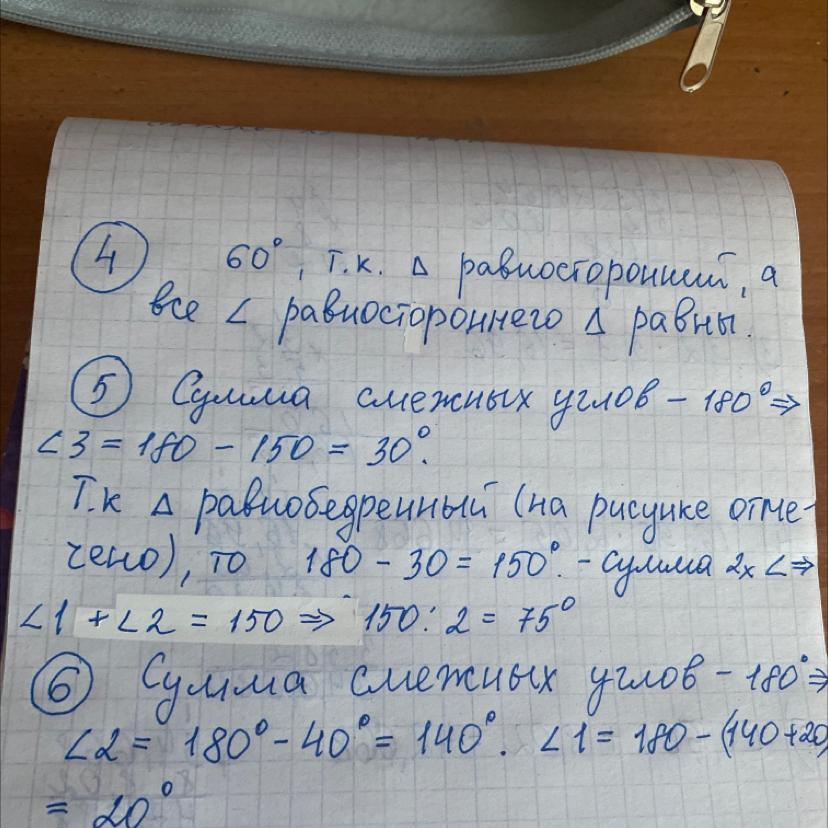 4 60°, т.к. Δ равносторонний, а
все ∠ равностороннего Δ равны.
5 Сумма смежных углов – 180° ⇒
∠3 = 180 – 150 = 30°.
Т.к Δ равнобедренный (на рисунке отме-
чено), то 180 – 30 = 150°. – сумма 2х ∠ ⇒
∠1 + ∠2 = 150 ⇒ 150 : 2 = 75°
6 Сумма смежных углов – 180° ⇒
∠2 = 180° – 40° = 140°. ∠1 = 180 – (140+20)
= 20°